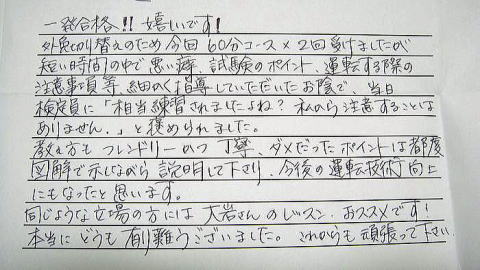 一発合格!! 嬉しいです!
外免切り替えのため今回60分コース×2回受けましたが
短い時間の中で悪い癖、試験のポイント、運転する際の
注意事項等、細かく指導していただいたお陰で、当日
検定員に「相当練習されましたよね? 私から注意することは
ありません。」と褒められました。
教え方もフレンドリーかつ丁寧、ダメだったポイントは都度
図解で示しながら説明して下さり、今後の運転技術向上
にもなったと思います。
同じような立場の方には大岩さんのレッスン、おススメです!
本当にどうも有難うございました。これからも頑張って下さい